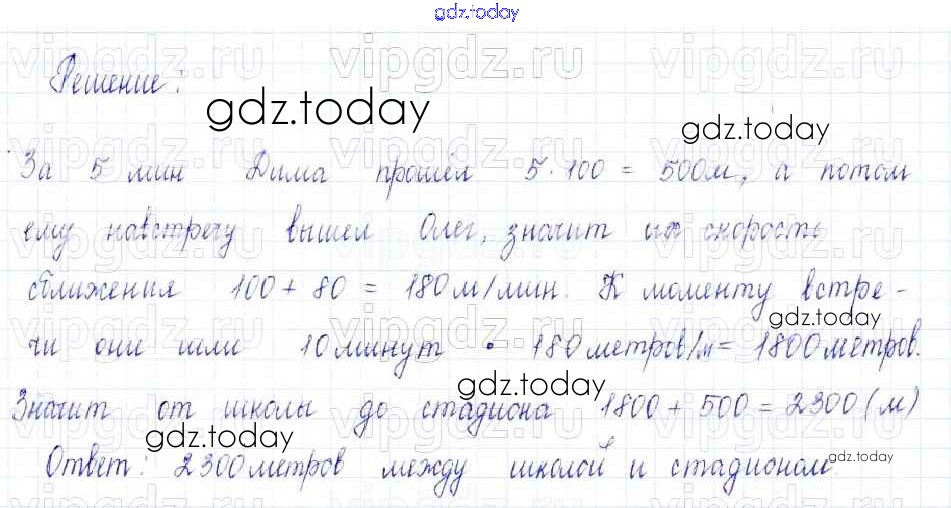 gdz.today
Решение:
gdz.today
gdz.today
За 5 мин Дима прошёл 5·100 = 500м, а потом
ему навстречу вышел Олег, значит их скорость
сближения 100 + 80 = 180 м/мин. К моменту встре-
gdz.today
чи они шли 10 минут • 180 метров/м = 1800 метров.
gdz.today
Значит от школы до стадиона 1800 + 500 = 2300 (м)
gdz.today
Ответ: 2300 метров между школой и стадионом.
gdz.today
vipgdz.ru